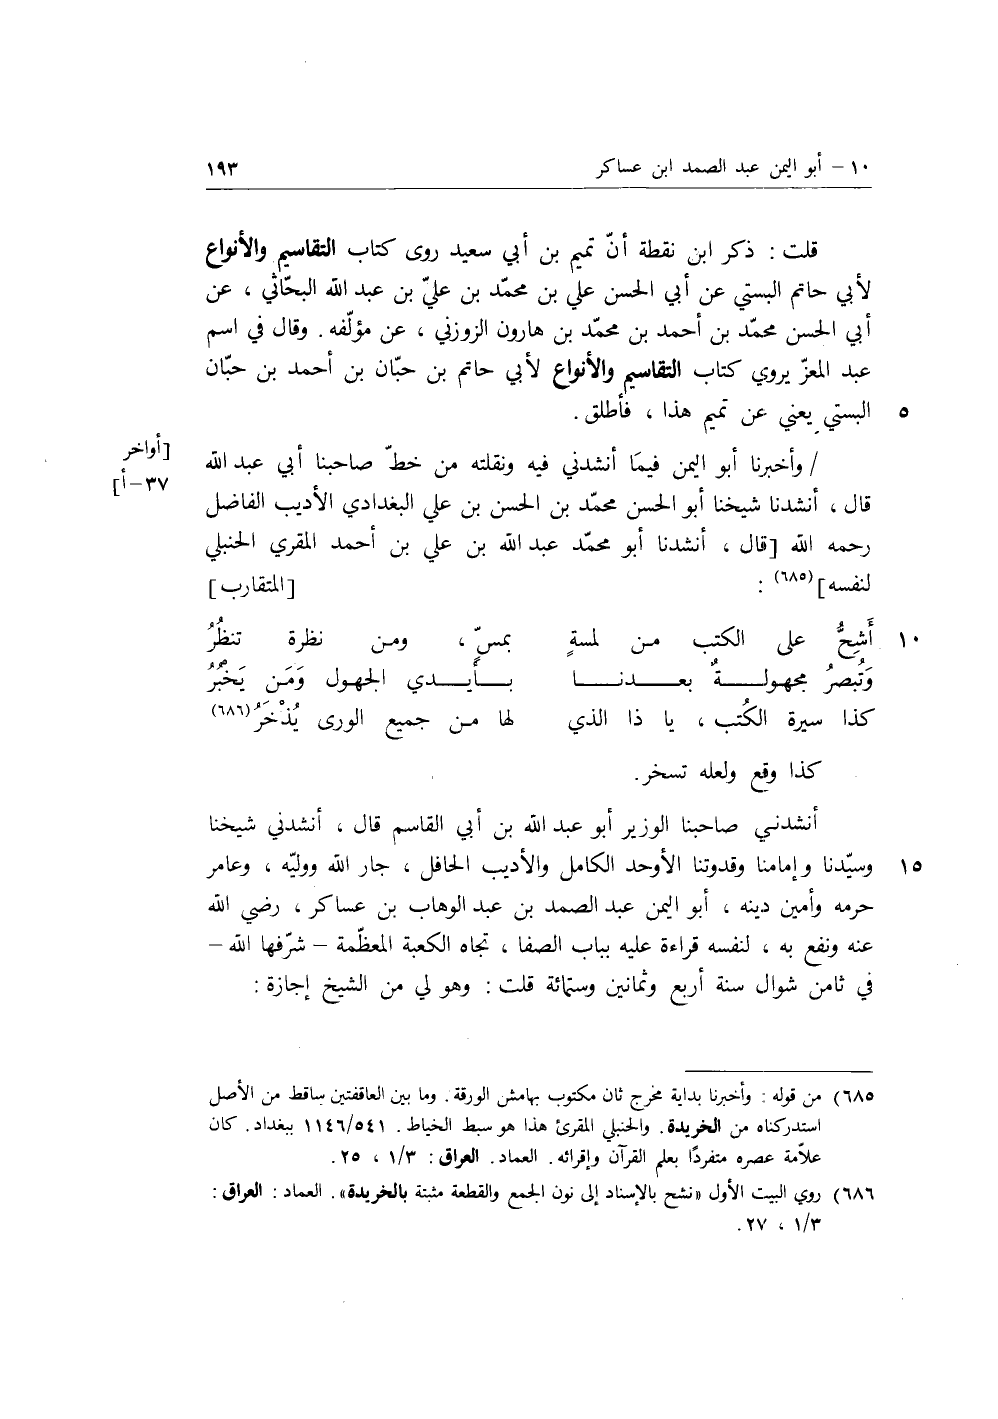 ١٠ – أبو اليمن عبد الصمد ابن عساكر ١٩٣
قلت : ذكر ابن نقطة أنّ تميم بن أبي سعيد روى كتاب التقاسيم والأنواع
لأبي حاتم البستي عن أبي الحسن علي بن محمّد بن عليّ بن عبد الله البحّاثي ، عن
أبي الحسن محمّد بن أحمد بن محمّد بن هارون الزوزني ، عن مؤلّفه . وقال في اسم
عبد المعزّ يروي كتاب التقاسيم والأنواع لأبي حاتم بن حبّان بن أحمد بن حبّان
البستي يعني عن تميم هذا ، فأطلق . ٥
/ وأخبرنا أبو اليمن فيمَا أنشدني فيه ونقلته من خطّ صاحبنا أبي عبد الله [أواخر
قال ، أنشدنا شيخنا أبو الحسن محمّد بن الحسن بن علي البغدادي الأديب الفاضل ٣٧–أ]
رحمه الله [قال ، أنشدنا أبو محمّد عبد الله بن علي بن أحمد المقري الحنبلي
لنفسه] (٦٨٥) : [المتقارب]
أَشِحُّ على الكتب من لمسةٍ بمسٍّ ، ومن نظرة تنظُرُ ١٠
وَتُبصرُ مجهولةٌ بعدنا بأيدي الجهول وَمَن يَخْبُرُ
كذا سيرة الكُتب ، يا ذا الذي لها من جميع الورى يُذْخَرُ (٦٨٦)
كذا وقع ولعله تسخر .
أنشدني صاحبنا الوزير أبو عبد الله بن أبي القاسم قال ، أنشدني شيخنا
وسيّدنا وإمامنا وقدوتنا الأوحد الكامل والأديب الحافل ، جار الله ووليّه ، وعامر ١٥
حرمه وأمين دينه ، أبو اليمن عبد الصمد بن عبد الوهاب بن عساكر ، رضي الله
عنه ونفع به ، لنفسه قراءة عليه بباب الصفا ، تجاه الكعبة المعظّمة – شرّفها الله –
في ثامن شوال سنة أربع وثمانين وستمائة قلت : وهو لي من الشيخ إجازة :
٦٨٥) من قوله : وأخبرنا بداية مخرج ثان مكتوب بهامش الورقة . وما بين العاقفتين ساقط من الأصل
استدركناه من الخريدة . والحنبلي المقرئ هذا هو سبط الخياط . ١١٤٦/٥٤١ ببغداد . كان
علاّمة عصره متفردًا بعلم القرآن وإقرائه . العماد . العراق : ١/٣ ، ٢٥ .
٦٨٦) روي البيت الأول «نشح بالإسناد إلى نون الجمع والقطعة مثبتة بالخريدة» . العماد : العراق :
١/٣ ، ٢٧ .